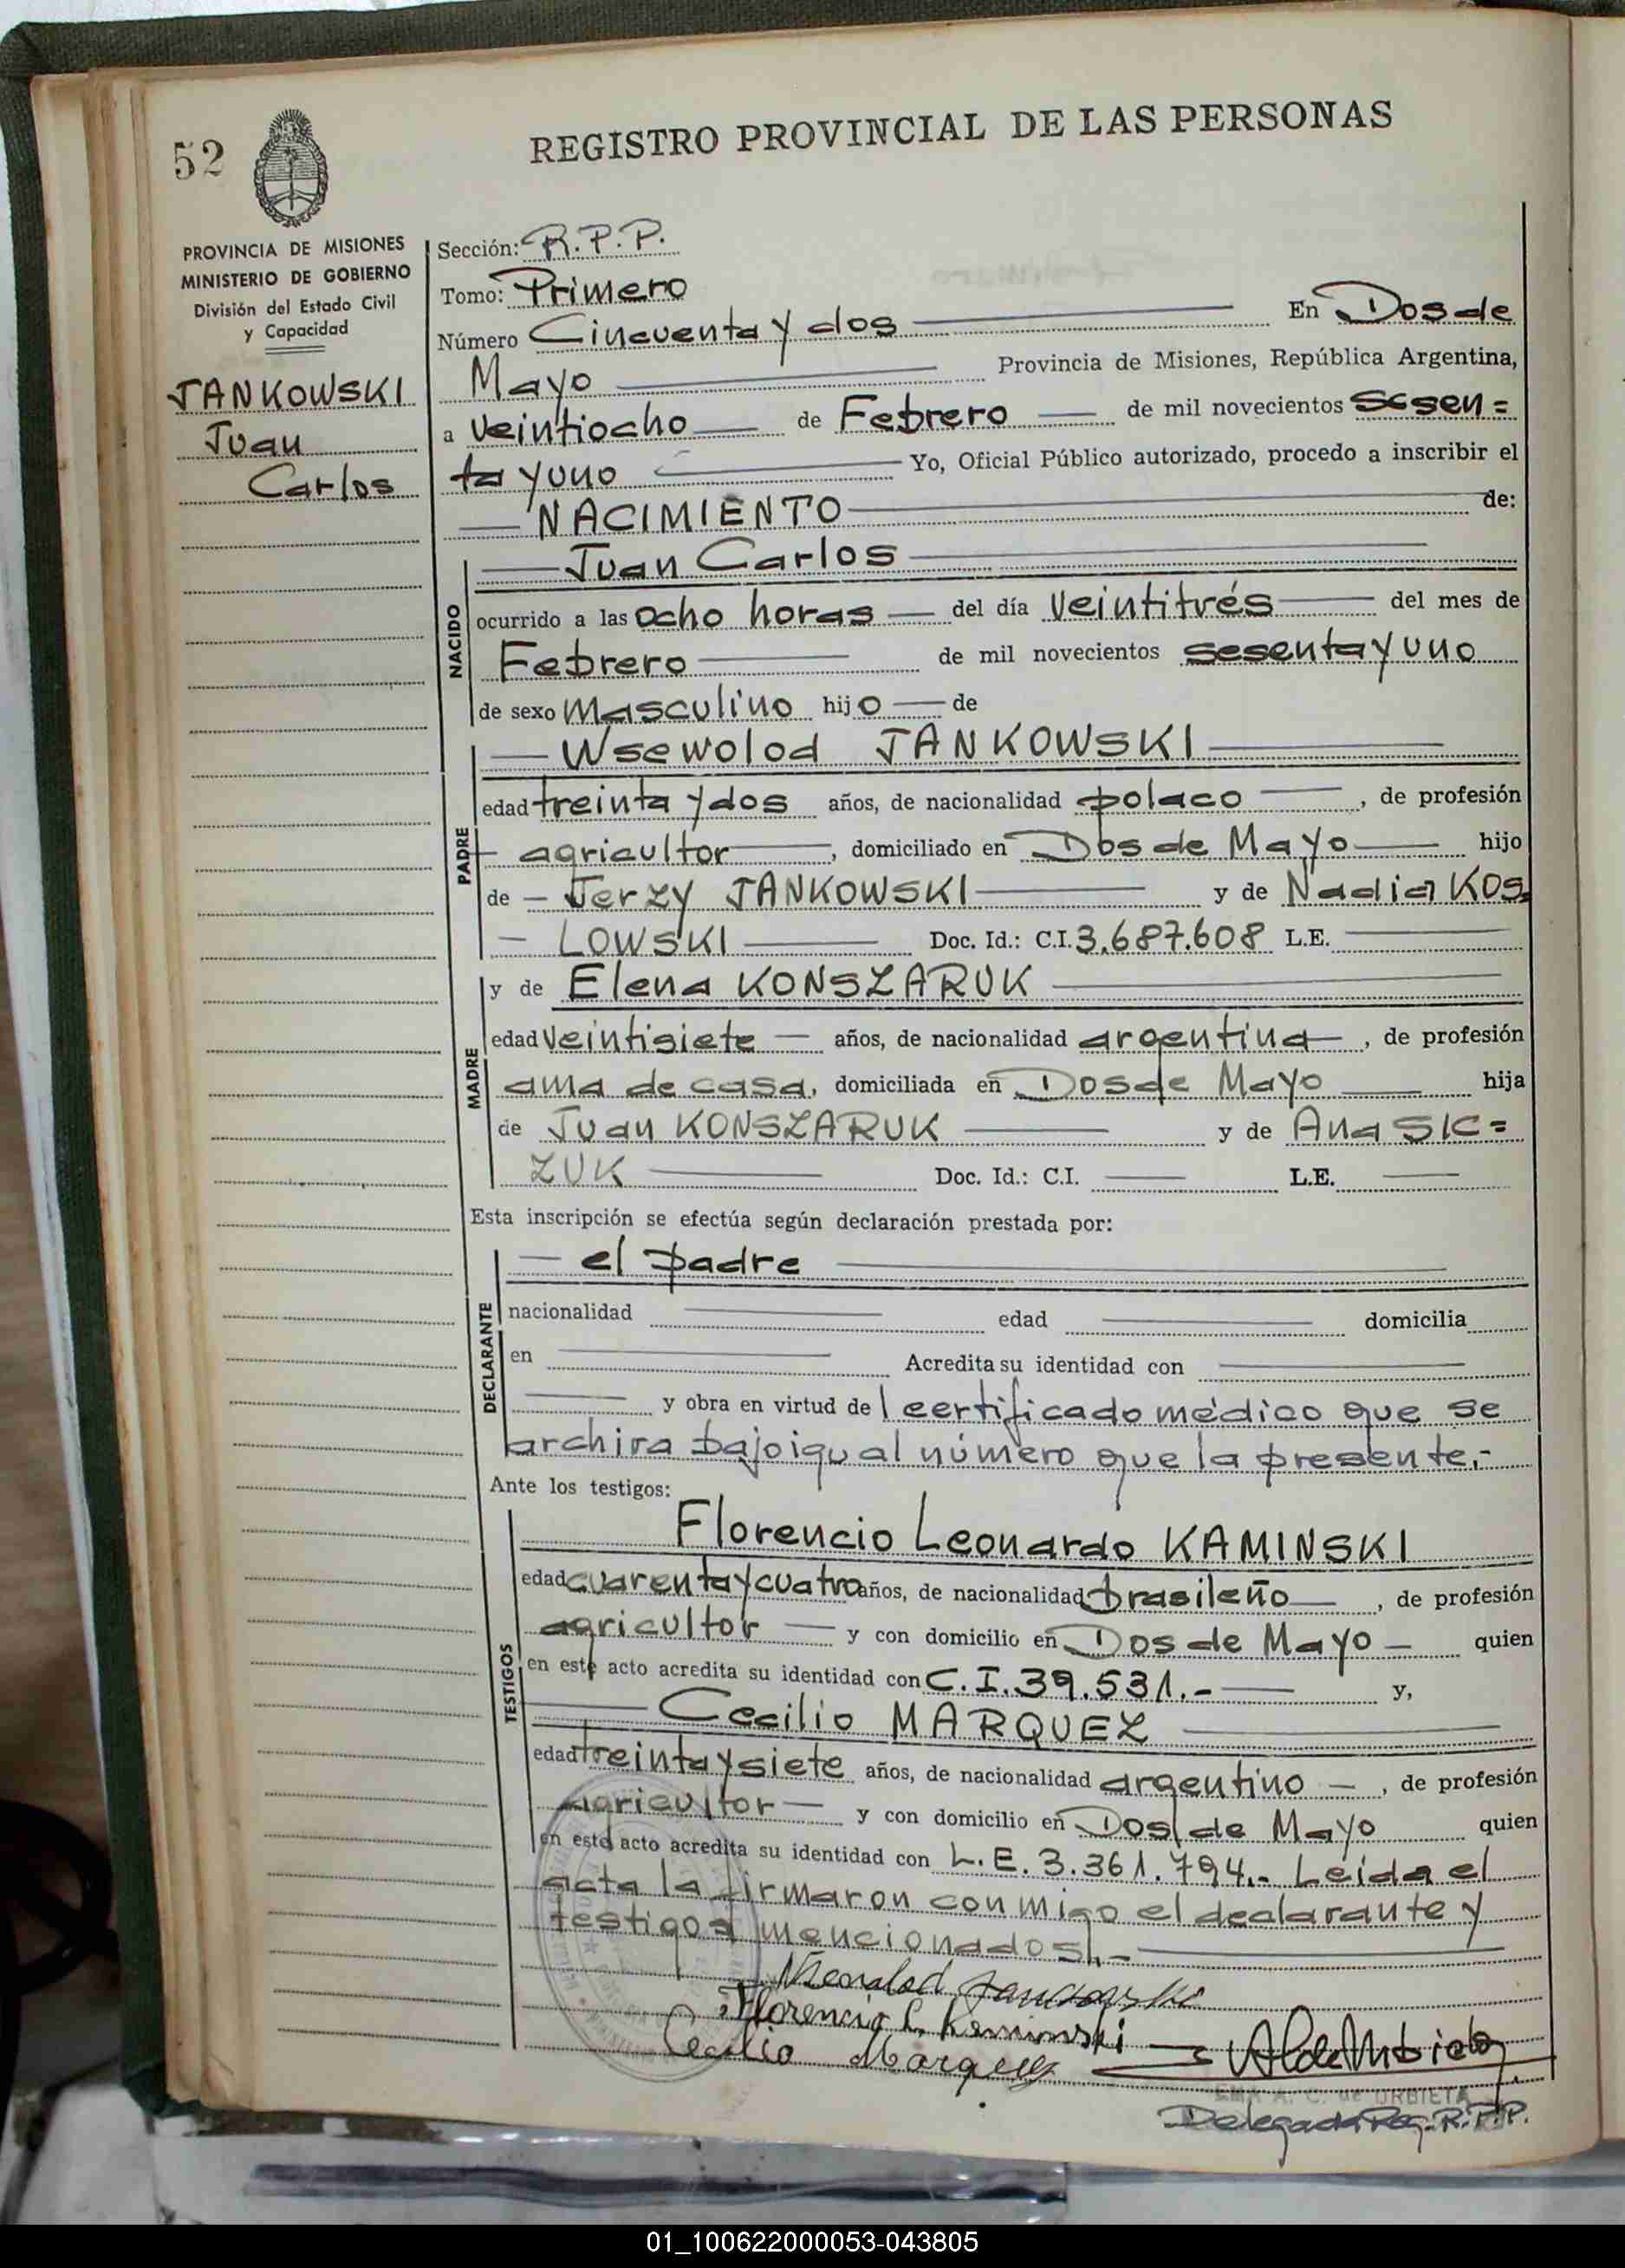 52
REGISTRO PROVINCIAL DE LAS PERSONAS
PROVINCIA DE MISIONES
MINISTERIO DE GOBIERNO
División del Estado Civil
y Capacidad
JANKOWSKI
Juan
Carlos
Sección: R.P.P.
Tomo: Primero
Número Cincuenta y dos En Dos de
Mayo Provincia de Misiones, República Argentina,
a veintiocho de Febrero de mil novecientos sesen=
ta y uno Yo, Oficial Público autorizado, procedo a inscribir el
NACIMIENTO de:
NACIDO
Juan Carlos
ocurrido a las ocho horas del día veintitrés del mes de
Febrero de mil novecientos sesenta y uno
de sexo masculino hijo de
PADRE
Wsewolod JANKOWSKI
edad treinta y dos años, de nacionalidad polaco, de profesión
agricultor, domiciliado en Dos de Mayo hijo
de Jerzy JANKOWSKI y de Nadia KOS=
LOWSKI Doc. Id.: C.I. 3.687.608 L.E.
MADRE
y de Elena KONSZARUK
edad veintisiete años, de nacionalidad argentina, de profesión
ama de casa, domiciliada en Dos de Mayo hija
de Juan KONSZARUK y de Ana SIC=
ZUK Doc. Id.: C.I. L.E.
Esta inscripción se efectúa según declaración prestada por:
DECLARANTE
el padre
nacionalidad edad domicilia
en Acredita su identidad con
y obra en virtud del certificado médico que se
archiva bajo igual número que la presente.-
Ante los testigos:
TESTIGOS
Florencio Leonardo KAMINSKI
edad cuarenta y cuatro años, de nacionalidad brasileño, de profesión
agricultor y con domicilio en Dos de Mayo quien
en este acto acredita su identidad con C.I. 39.531.- y,
Cecilio MARQUEZ
edad treinta y siete años, de nacionalidad argentino, de profesión
agricultor y con domicilio en Dos de Mayo quien
en este acto acredita su identidad con L.E. 3.361.794.- Leída el
acta la firmaron conmigo el declarante y
testigos mencionados.-
Florencio L. Kaminski
Cecilio Marquez
A. C. de URBIETA
Delegada Reg. R.P.P.
01_100622000053-043805